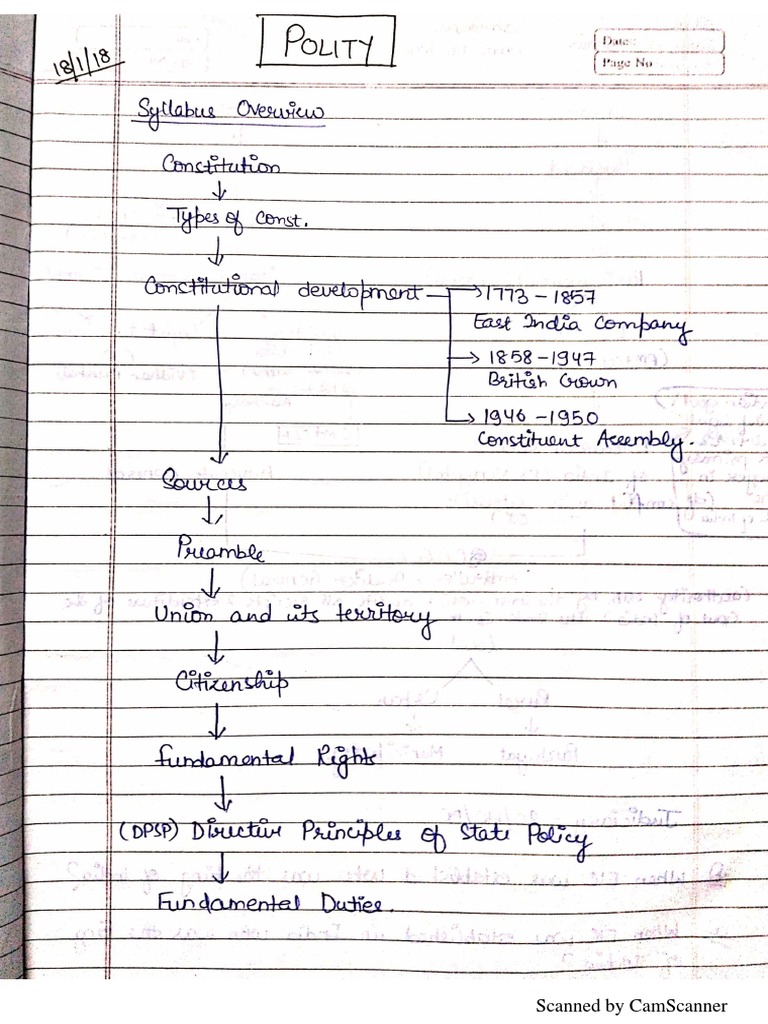 POLITY
18/1/18
Date :
Page No
Syllabus Overview
Constitution
Types of Const.
Constitutional development
1773 - 1857
East India Company
1858 - 1947
British Crown
1946 - 1950
Constituent Assembly.
Sources
Preamble
Union and its territory
Citizenship
Fundamental Rights
(DPSP) Directive Principles of State Policy
Fundamental Duties.
Scanned by CamScanner